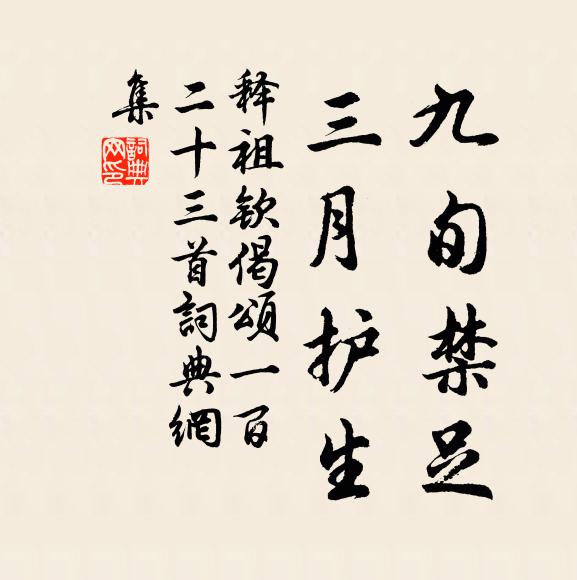 九旬禁足
三月护生
释祖钦偈頌一百
二十三首詞典網
集
詞典
网印